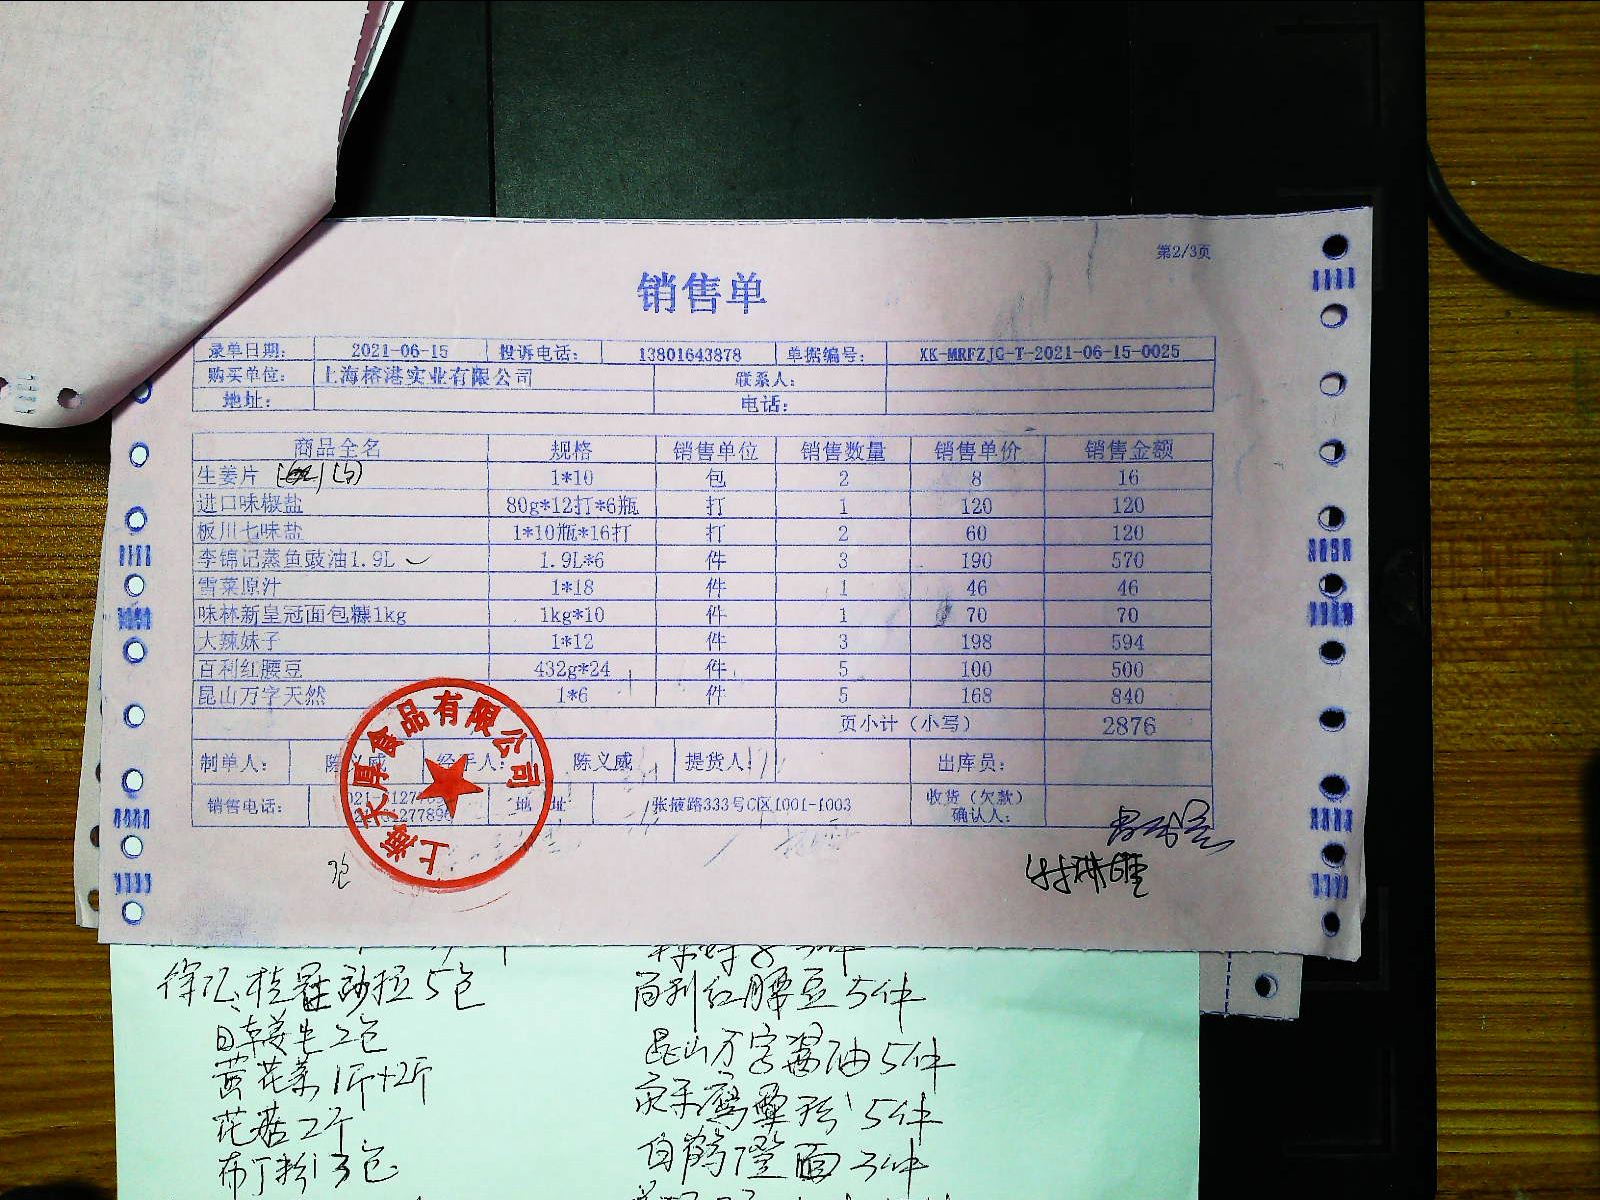 第2/3页
销售单
录单日期: 2021-06-15 投诉电话: 13801643878 单据编号: XK-MRFZJG-T-2021-06-15-0025
购买单位: 上海榕港实业有限公司 联系人:
地址: 电话:
商品全名 规格 销售单位 销售数量 销售单价 销售金额
生姜片 1*10 包 2 8 16
进口味椒盐 80g*12打*6瓶 打 1 120 120
板川七味盐 1*10瓶*16打 打 2 60 120
李锦记蒸鱼豉油1.9L 1.9L*6 件 3 190 570
雪菜原汁 1*18 件 1 46 46
味林新皇冠面包糠1kg 1kg*10 件 1 70 70
大辣妹子 1*12 件 3 198 594
百利红腰豆 432g*24 件 5 100 500
昆山万字天然 1*6 件 5 168 840
页小计（小写） 2876
制单人: 陈义威 经手人: 陈义威 提货人: 出库员:
销售电话: 地 址 张掖路333号C区1001-1003 收货（欠款）
确认人:
食品有限公司
上海
5包
百利红腰豆 5件
2包
昆山万字酱油 5件
黄花菜 1斤+2斤
5件
花菇 2斤
白鹤澄面 3件
布丁粉 3包